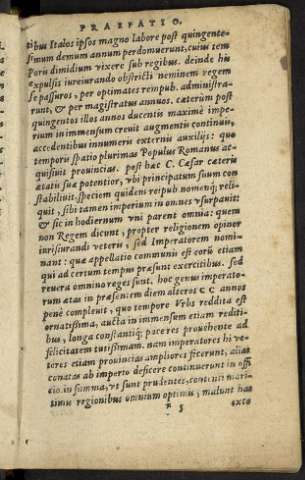 PRAEFATIO.
tibus Italos ipsos magno labore post quingente-
simum demum annum perdomuerunt, cuius tem
poris dimidium vixere sub regibus. deinde his
expulsis iureiurando obstricti neminem regem
se passuros, per optimates rempub. administra-
runt, & per magistratus annuos. caeterùm post
quingentos illos annos ducentis maximè impe-
rium in immensum creuit augmentis continuis,
accedentibus innumeris externis auxilijs: quo
temporis spatio plurimas Populus Romanus ac-
quisiuit prouincias. post haec C. Caesar caeteris
aetatis suae potentior, vbi principatum suum con
stabiliuit, speciem quidem reipub nomenq; reli-
quit, sibi tamen imperium in omnes vsurpauit
& sic in hodiernum vni parent omnia: quem
non Regem dicunt, propter religionem opinor
iurisiurandi veteris, sed Imperatorem nomi
nant: quae appellatio communis est eorũ etiam
qui ad certum tempus praesunt exercitibus. sed
reuera omnino reges sunt. hoc genus imperato-
rum aetas in praesentem diem alteros CC annos
penè compleuit, quo tempore Vrbs reddita est
ornatissima, aucta in immensum etiam rediti-
bus, longa constantiq; pace res prouehente ad
felicitatem tutissimam. nam imperatores hi ve-
teres etiam prouincias ampliores fecerunt, alias
conatas ab imperio deficere continuerunt in offi
cio. in summa, vt sunt prudentes, contenti mari-
timis regionibus omnium optimis, malunt has
exte